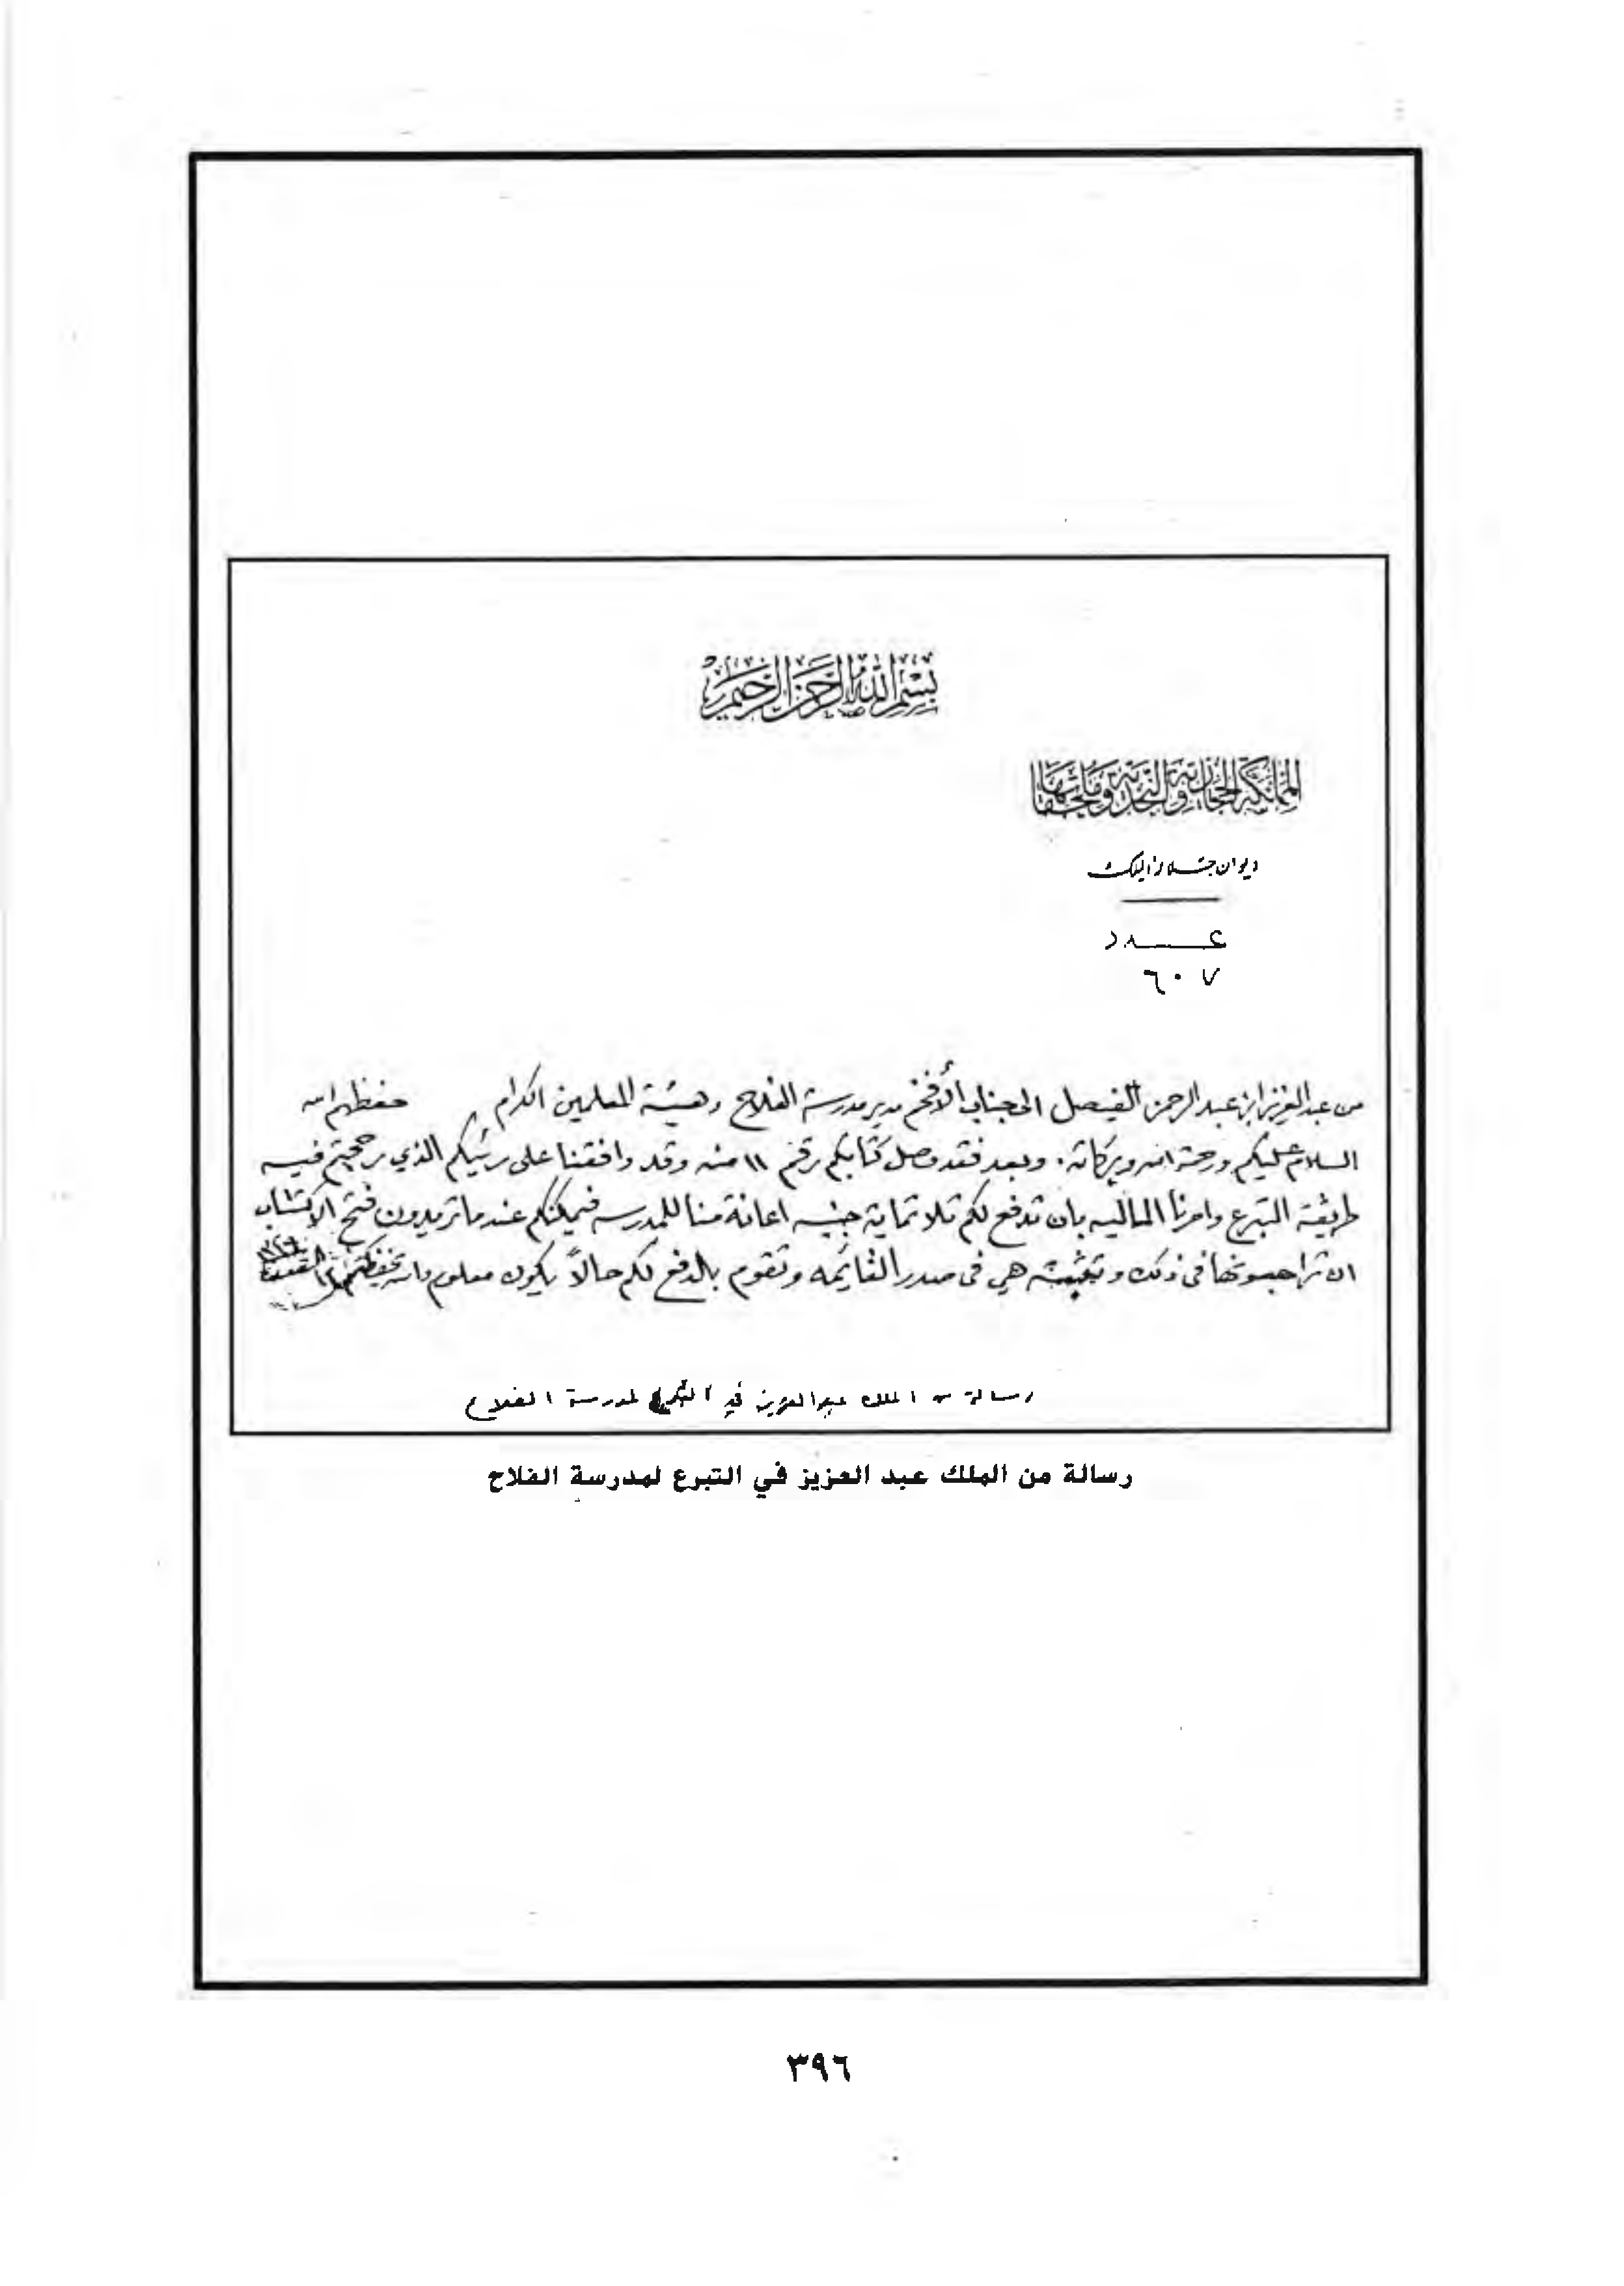 بسم الله الرحمن الرحيم
المملكة الحجازية والنجدية وملحقاتها
ديوان جلالة الملك
عدد
٦٠٧
من عبد العزيز ابن عبد الرحمن الفيصل الى جناب الأفخم مدير مدرسة الفلاح وهيئة المعلمين الكرام حفظهم الله
السلام عليكم ورحمة الله وبركاته . وبعد فقد وصل كتابكم رقم ١١ منه وقد وافقنا على رئيكم الذي رجحتم فيه
طريقة التبرع وامرنا الماليه بان تدفع لكم ثلاثماية جنيه اعانة منا للمدرسه فيمكنكم عندما تريدون فتح الاكتتاب
ان تراجعونها في ذلك وتثبته هي في صدر القائمه وتقوم بالدفع لكم حالاً يكون معلوم والله يحفظكم
رسالة من الملك عبد العزيز في التبرع لمدرسة الفلاح
رسالة من الملك عبد العزيز في التبرع لمدرسة الفلاح
٣٩٦